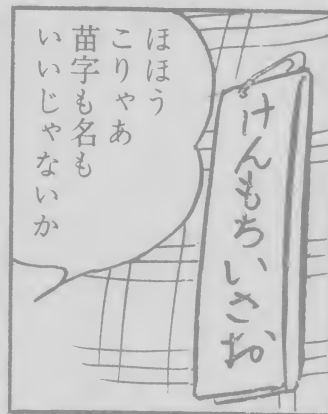 ほほう
こりゃあ
苗字も名も
いいじゃないか
けんもちいさお